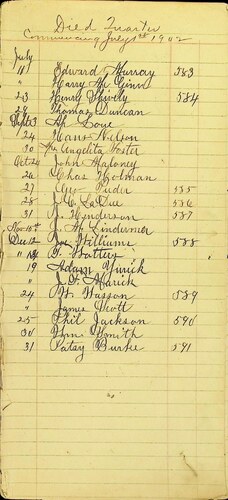 Died Quarter
Commencing July 1st 1902
July
11 Edward Murray 583
" Harry Mc Ginn
23 Henry 584
29 Thomas Duncan
Sept 3 Lone
24 Hans Nelson
30 Angelita Foster
Oct 24 John Maloney
26 Chas Holman
27 Geo Puder 585
28 J. C. La Due 586
31 J. Henderson 587
Nov 15th J. H. Lindemer
Dec 12 Joe Williams 588
" 14 F. Battey
19 Adam
" J. H.
24 W. Wasson 589
" James Scott
25 Phil Jackson 590
30 Wm Smith
31 Patsy Burke 591